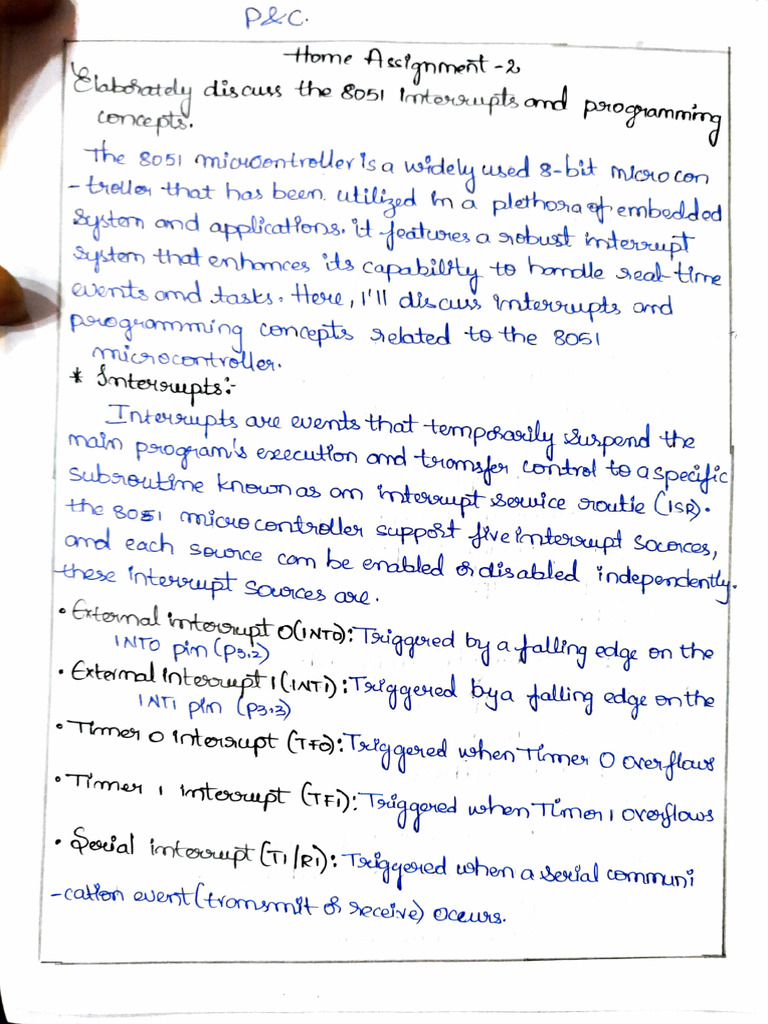 P&C.
Home Assignment-2
Elaborately discuss the 8051 interrupts and programming
concepts.
The 8051 microcontroller is a widely used 8-bit microcon
-troller that has been utilized in a plethora of embedded
system and applications. it features a robust interrupt
system that enhances its capability to handle real-time
events and tasks. Here, I'll discuss interrupts and
programming concepts related to the 8051
microcontroller.
* Interrupts:-
Interrupts are events that temporarily suspend the
main program's execution and transfer control to a specific
subroutine known as an interrupt service routie (ISR).
the 8051 microcontroller support five interrupt socorces,
and each source can be enabled or disabled independently.
these interrupt sources are.
• External interrupt 0(INT0): Triggered by a falling edge on the
INT0 pin (P3.2)
• External Interrupt 1(INT1): Triggered by a falling edge on the
INT1 pin (P3.3)
• Timer 0 interrupt (TF0): Triggered when Timer 0 overflows
• Timer 1 interrupt (TF1): Triggered when Timer 1 overflows
• Serial interrupt (T1/R1): Triggered when a serial communi
-cation event (transmit or receive) ocurs.